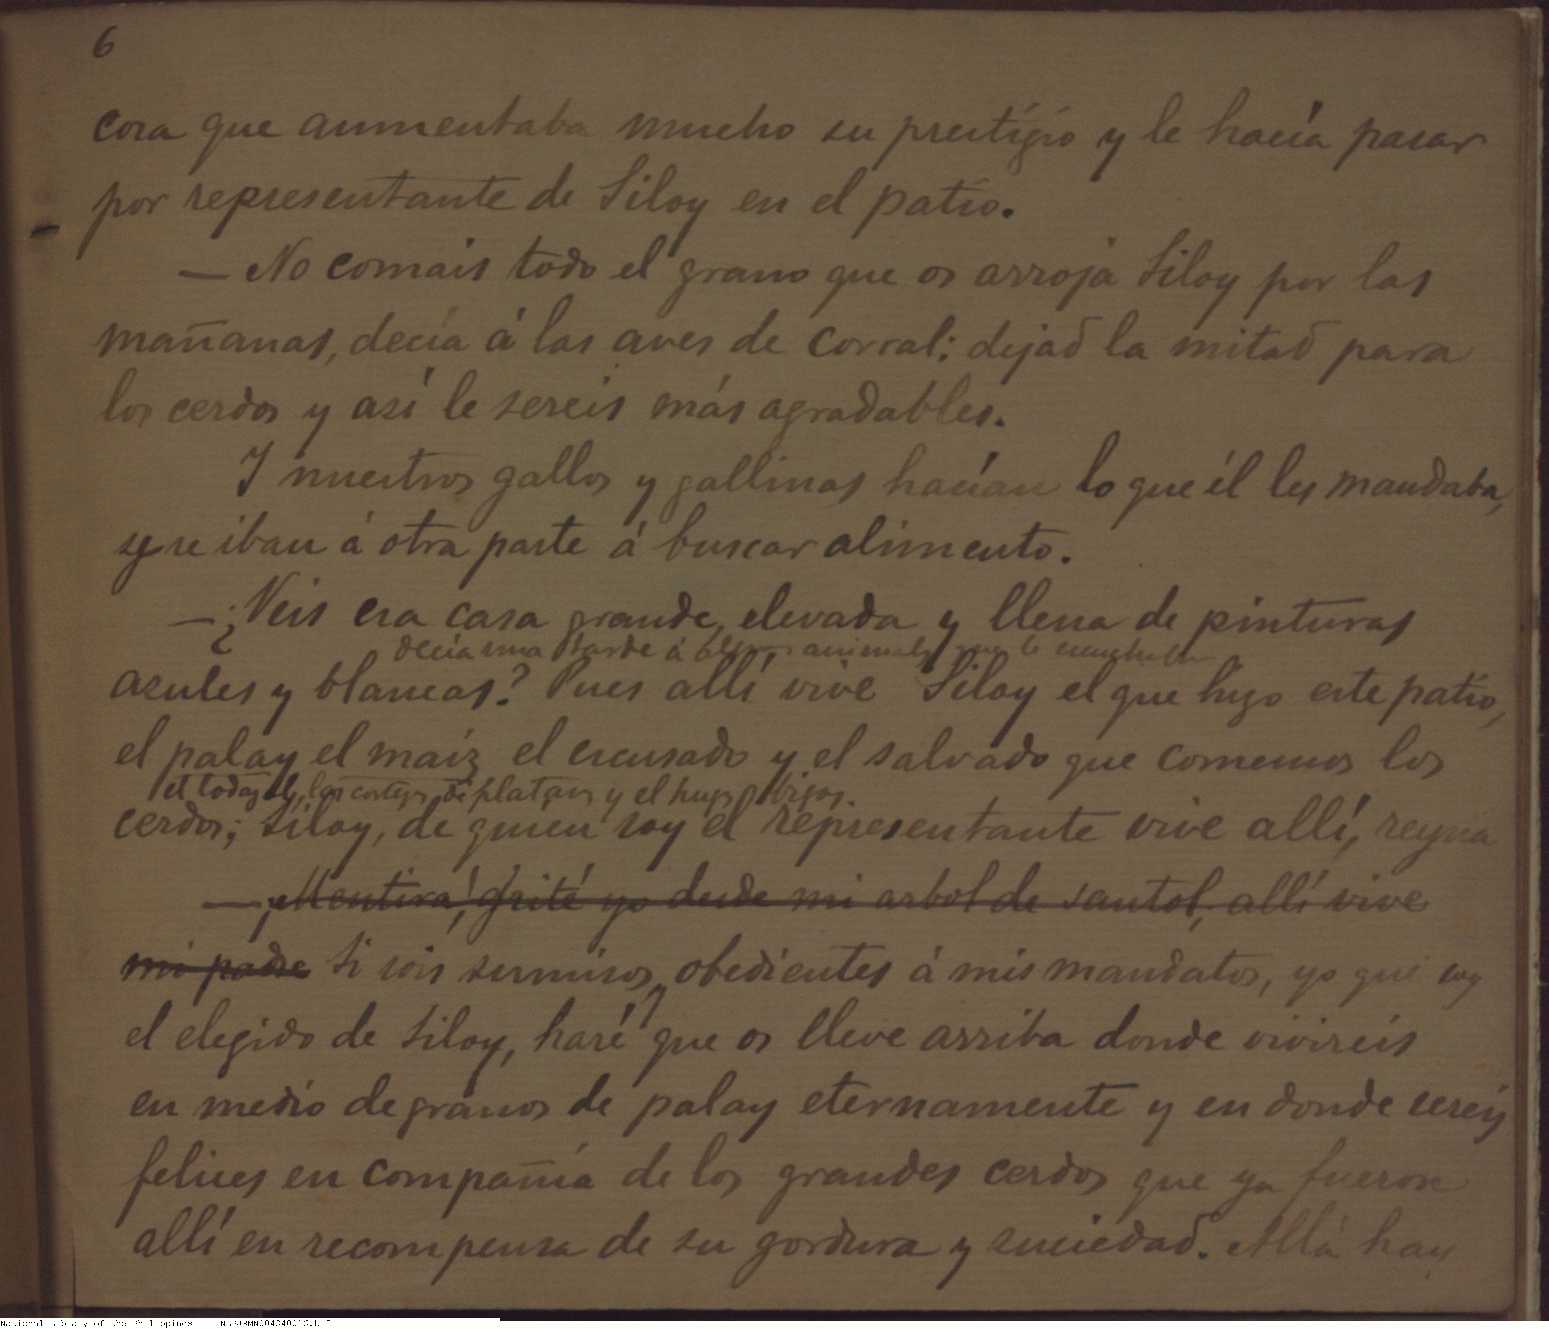 6
cosa que aumentaba mucho su prestigio y le hacía pasar
por representante de Siloy en el patio.
— No comais todo el grano que os arroja Siloy por las
mañanas, decía á las aves de corral; dejad la mitad para
los cerdos y así le sereis más agradables.
Y nuestros gallos y gallinas hacían lo que él les mandaba,
y se iban á otra parte á buscar alimento.
— ¿Veis esa casa grande, elevada y llena de pinturas
decía una tarde á animales que le
azules y blancas? Pues allí vive Siloy el que hizo este patio,
el palay el maiz el escusado y el salvado que comemos los
el las de platano y el hijos.
cerdos; Siloy, de quien soy el representante vive allí, reyna
— ¡Mentira! grité yo desde mi arbol de santol, allí vive
mi padre Si sois sumisos y obedientes á mis mandatos, yo que soy
el elegido de Siloy, haré que os lleve arriba donde vivireis
en medio de granos de palay eternamente y en donde sereis
felices en compañía de los grandes cerdos que ya fueron
allí en recompensa de su gordura y suciedad. Allá hay
National Library of the Philippines